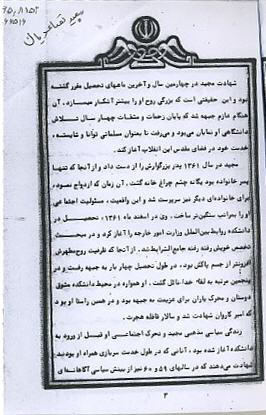 شهادت مجید در چهارمین سال و آخرین ماههای تحصیل مقرر گشته
بود و این حقیقتی است که بزرگی روح او را بیشتر آشکار میسازد. آن
هنگام عازم جبهه شد که پایان زحمات و مشقات چهار سال تلاش
دانشگاهی او نمایان می‌بود و می‌رفت تا بعنوان مسلمانی توانا و شایسته،
خدمت خود در فضای مقدس این انقلاب آغاز کند.
مجید در سال ۱۳۶۱ پدر بزرگوارش را از دست داد و از آنجا که تنها
پسر خانواده بود یگانه چشم چراغ خانه گشت. آن زمان که ازدواج نمود،
برای خانواده‌ای دیگر نیز سرپرست شد و این واقعیت، مسئولیت اجتماعی
او را بمراتب سنگین‌تر ساخت. وی در اسفند ماه ۱۳۶۱، تحصیل در
دانشکده روابط بین‌الملل وزارت امور خارجه را آغاز کرد و در مبحث
تخصص خویش رفته رفته جامع‌الشرایط شد. از آنجا که ظرفیت روح مطهرش
افزونتر از جسم پاکش بود، در طول تحصیل چهار بار به جبهه رفت و در
پنجمین مرتبه به لقاء خدا نائل گشت. او همواره در محیط دانشکده مشوق
دوستان و محرک یاران برای عزیمت به جبهه بود و در همین راستا او بود
که امیر کاروان شهادت شد و سالار قافله هجرت.
زندگی سیاسی مذهبی مجید و تحرک اجتماعی او قبل از ورود به
دانشکده آغاز شده بود، آنانی که در طول خدمت سربازی همراه او بودند،
شهادت می‌دهند که در سالهای ۵۹ و ۶۰ نیز از بینش سیاسی آگاهانه‌ای
۳